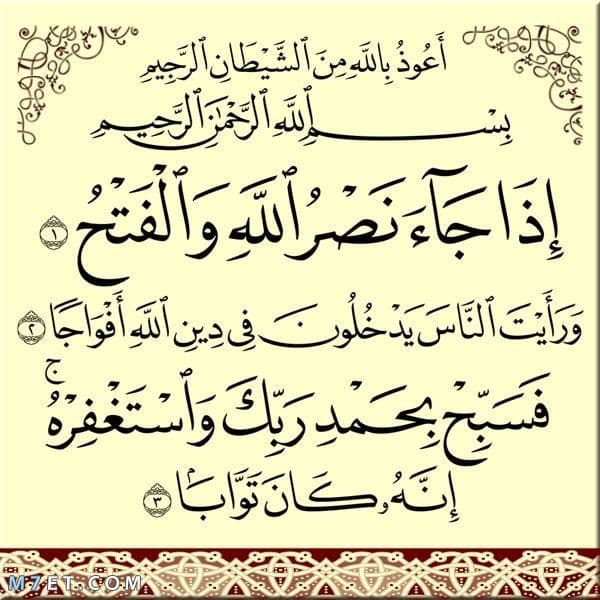 أَعُوذُ بِاللَّهِ مِنَ الشَّيْطَانِ الرَّجِيمِ
بِسْمِ ٱللَّهِ ٱلرَّحْمَٰنِ ٱلرَّحِيمِ
إِذَا جَآءَ نَصْرُ ٱللَّهِ وَٱلْفَتْحُ ١
وَرَأَيْتَ ٱلنَّاسَ يَدْخُلُونَ فِى دِينِ ٱللَّهِ أَفْوَاجًا ٢
فَسَبِّحْ بِحَمْدِ رَبِّكَ وَٱسْتَغْفِرْهُ ۚ
إِنَّهُۥ كَانَ تَوَّابًۢا ٣
M7ET.COM